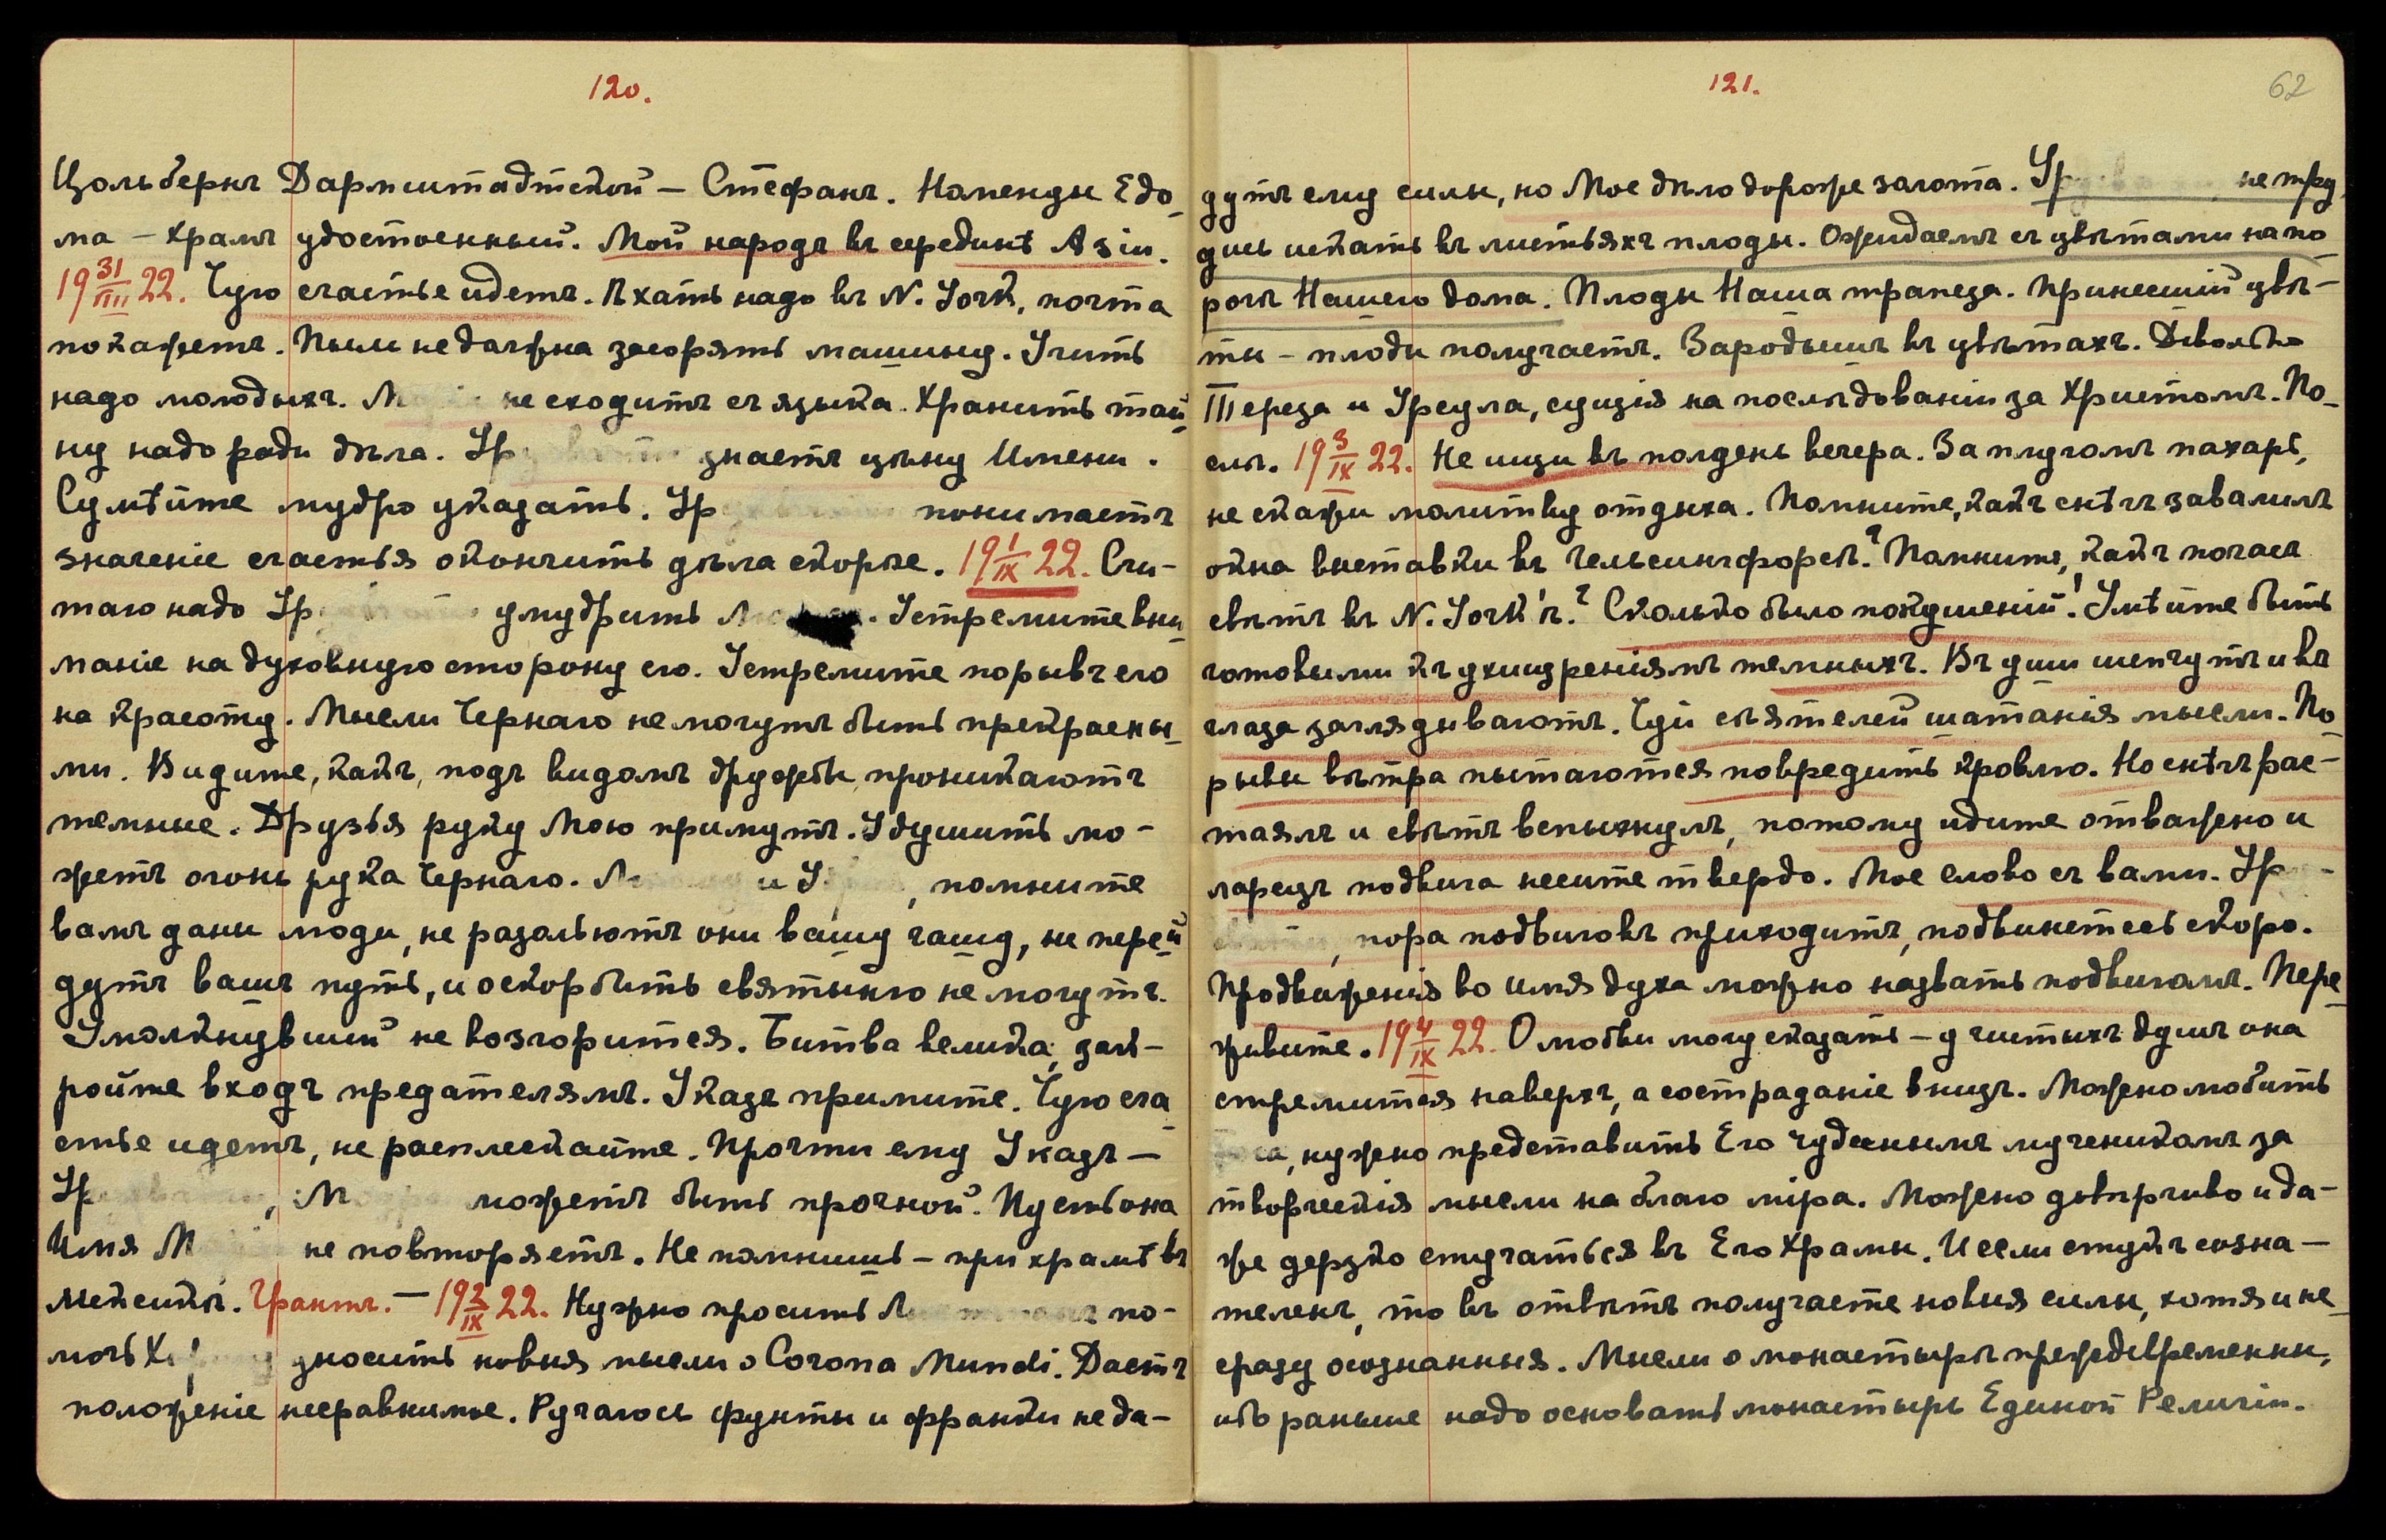 120.
Цольбернъ Дармштадтской – Стефанъ. Напенды Едо-
ма – храмъ удостоенный. Мой народъ въ серединѣ Азіи.
19 31/VIII 22. Чую счастье идетъ. Ѣхать надо въ N. York, почта
покажетъ. Пыли не должна засорять машину. Учить
надо молодыхъ. М не сходитъ съ языка. Хранить тай-
ну надо ради дѣла. Ур знаетъ цѣну Имени.
Сумѣйте мудро указать. Ур понимаетъ
значеніе счастья окончить дѣла скорѣе. 19 1/IX 22. Счи-
таю надо Ур умудрить. Устремите вни-
маніе на духовную сторону его. Устремите порывъ его
на красоту. Мысли Чернаго не могутъ быть прекрасны-
ми. Видите, какъ, подъ видомъ дружбы, проникаютъ
темные. Друзья руку Мою примутъ. Удушить мо-
жетъ огонь рука Чернаго. и У, помните
вамъ даны люди, не разольютъ они вашу чашу, не перей-
дутъ вашъ путь, и оскорбить святыню не могутъ.
Умолкнувшій не возгорится. Битва велика, зак-
ройте входъ предателямъ. Указъ примите. Чую сча-
стье идетъ, не расплескайте. Прочти ему Указъ –
Ур, М можетъ быть прочной. Пусть она
Имя М не повторяетъ. Не помнишь – при храмѣ въ
Мексикѣ. Грантъ. – 19 2/IX 22. Нужно просить по-
мочь Х уносить новыя мысли о Corona Mundi. Дастъ
положеніе несравнимое. Ручаюсь фунты и франки не да-
121.
62
дутъ ему силы, но Мое дѣло дороже золота. Ур не тру-
дись искать въ листьяхъ плоды. Ожидаемъ съ цвѣтами на по-
рогѣ Нашего дома. Плоды Наша трапеза. Принесшій цвѣ-
ты – плоды получаетъ. Зародышъ въ цвѣтахъ. Довольно
Тереза и Урсула, суція на послѣдованіи за Христомъ. По-
слѣ. 19 3/IX 22. Не ищи въ полдень вечера. За плугомъ пахарь,
не скажи молитву отдыха. Помните, какъ снѣгъ завалилъ
окна выставки въ Гельсингфорсѣ? Помните, какъ погасъ
свѣтъ въ N. York'ѣ? Сколько было покушеній! Умѣйте быть
готовыми къ ухищреніямъ темныхъ. Въ уши шепчутъ и въ
глаза заглядываютъ. Чуй сѣятелей шатанія мысли. По-
рывы вѣтра пытаются повредить кровлю. Но снѣгъ рас-
таялъ и свѣтъ вспыхнулъ, потому идите отважно и
ларецъ подвига несите твердо. Мое слово съ вами. Ур-
, пора подвиговъ приходитъ, подвинетесь скоро.
Продвиженія во имя духа можно назвать подвигомъ. Пере-
живите. 19 4/IX 22. О любви могу сказать – у чистыхъ душъ она
стремится наверхъ, а состраданіе внизъ. Можно любить
, нужно представить Его чудеснымъ мученикомъ за
творческія мысли на благо міра. Можно довѣрчиво и да-
же дерзко стучаться въ Его Храмы. И если стукъ созна-
теленъ, то въ отвѣтъ получаете новыя силы, хотя и не
сразу осознанныя. Мысли о монастырѣ преждевременны,
ибо раньше надо основать монастырь Единой Религіи.